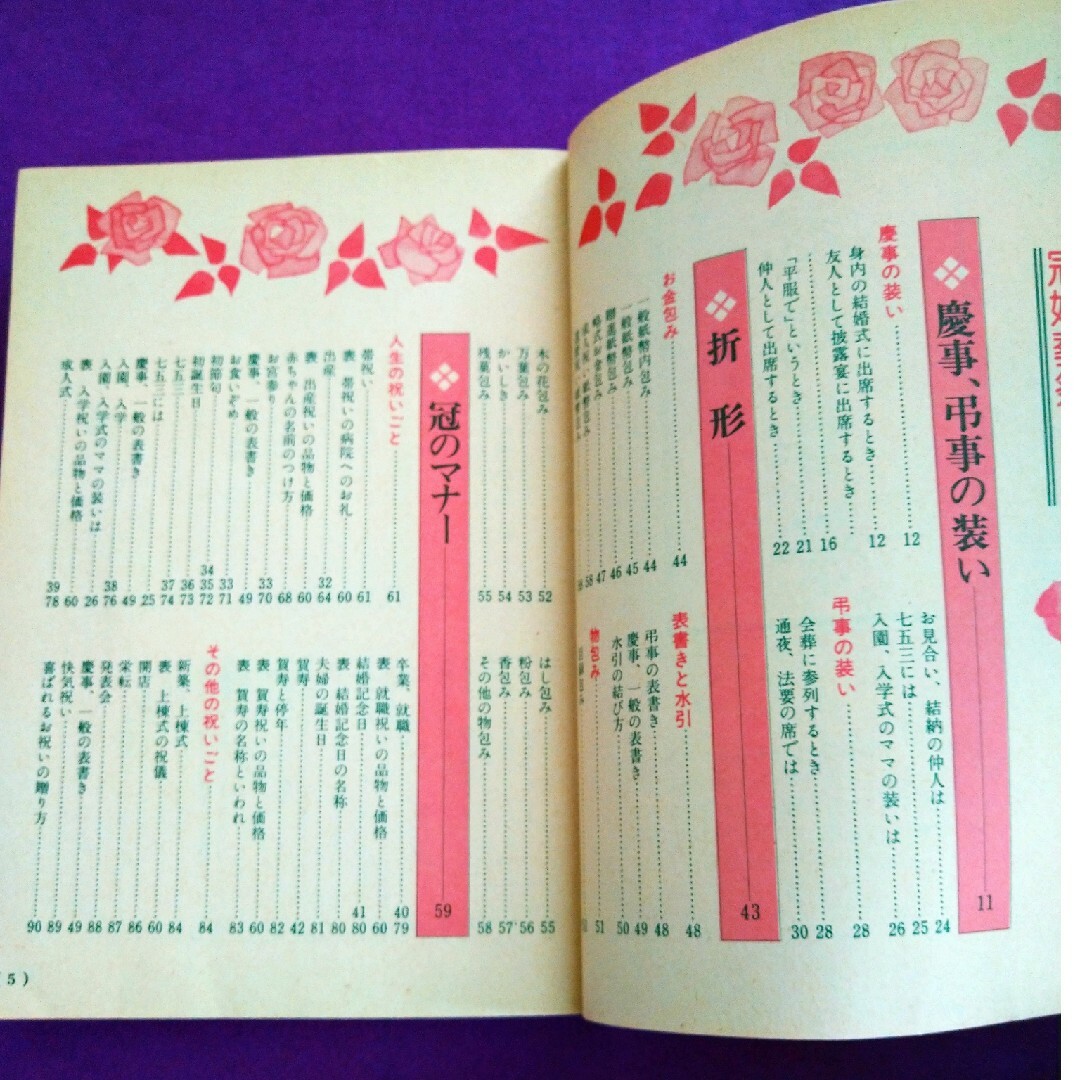 慶事、弔事の装い 11
慶事の装い 12
身内の結婚式に出席するとき 12
友人として披露宴に出席するとき 16
「平服で」というとき 21
仲人として出席するとき 22
お見合い、結納の仲人は 24
七五三には 25
入園、入学式のママの装いは 26
弔事の装い 28
会葬に参列するとき 28
通夜、法要の席では 30
折形 43
お金包み 44
一般紙幣内包み 44
一般紙幣包み 45
贈進紙幣包み 46
略式お金包み 47
表書きと水引 48
弔事の表書き 48
慶事、一般の表書き 49
水引の結び方 50
物包み 51
木の花包み 52
万葉包み 53
かいしき 54
残菓包み 55
はし包み 55
粉包み 56
香包み 57
その他の物包み 58
冠のマナー 59
人生の祝いごと 61
帯祝い 61
表 帯祝いの病院へのお礼 60
出産 32 64
表 出産祝いの品物と価格 60
赤ちゃんの名前のつけ方 68
お宮参り 33 70
慶事、一般の表書き 49
お食いぞめ 33 71
初節句 34 35 72
初誕生日 36 73
七五三 37 74
七五三には 25
慶事、一般の表書き 49
入園、入学 38 76
入園、入学式のママの装いは 26
表 入学祝いの品物と価格 60
成人式 39 78
卒業、就職 40 79
表 就職祝いの品物と価格 60
結婚記念日 41 80
表 結婚記念日の名称 80
夫婦の誕生日 81
賀寿 42
賀寿と停年 82
表 賀寿祝いの品物と価格 60
表 賀寿の名称といわれ 83
その他の祝いごと 84
新築、上棟式 84
表 上棟式の祝儀 60
開店 86
栄転 87
発表会 88
慶事、一般の表書き 49
快気祝い 89
喜ばれるお祝いの贈り方 90
5)